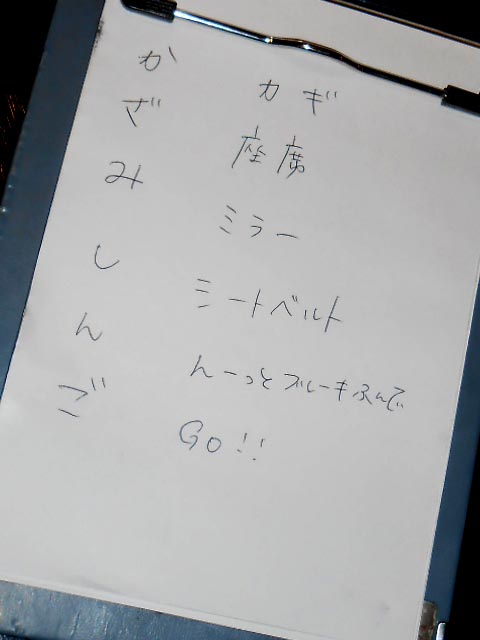 か カギ
ざ 座席
み ミラー
し シートベルト
ん んーっとブレーキふんで
ご GO!!